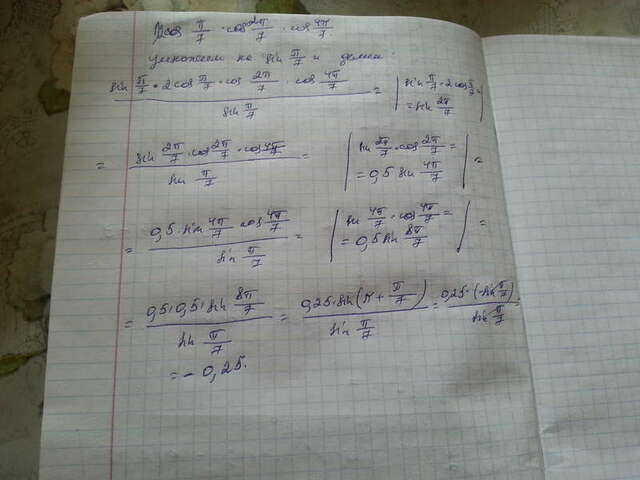 2cos π/7 · cos 2π/7 · cos 4π/7.
умножаем на sin π/7 и делим:
sin π/7 · 2cos π/7 · cos 2π/7 · cos 4π/7 / sin π/7 = | sin π/7 · 2cos π/7 = = sin 2π/7 |
= sin 2π/7 · cos 2π/7 · cos 4π/7 / sin π/7 = | sin 2π/7 · cos 2π/7 = = 0,5 sin 4π/7 | =
= 0,5 · sin 4π/7 cos 4π/7 / sin π/7 = | sin 4π/7 · cos 4π/7 = = 0,5 sin 8π/7 | =
= 0,5 · 0,5 · sin 8π/7 / sin π/7 = 0,25 · sin (π + π/7) / sin π/7 = 0,25 · (-sin π/7) / sin π/7 =
= - 0,25.